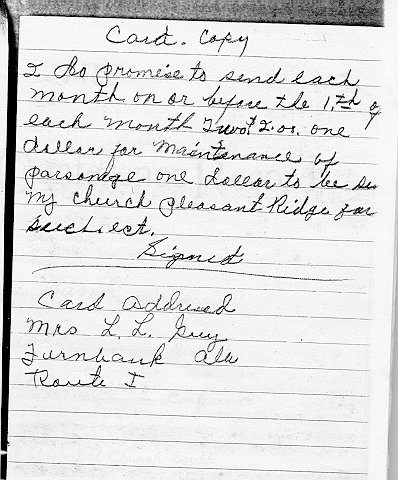 Card. Copy
I do promise to send each
month on or before the 1.th of
each month Two $2.00. one
dollar for Maintenance of
parsonage one dollar to be
my church pleasant Ridge for
such. ect.
Signed
Card Addressed
Mrs L. L. Guy
Turnbank Ala
Route I